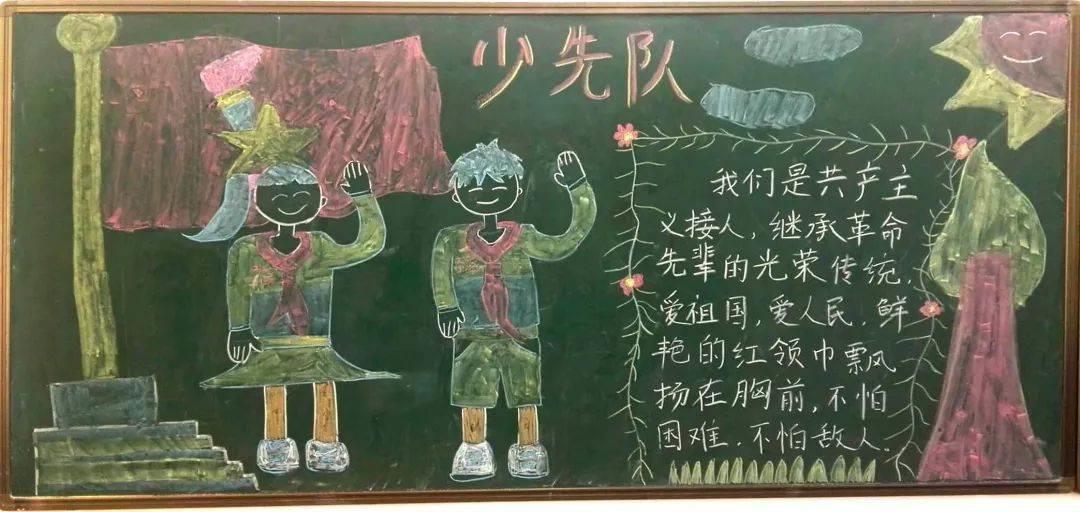 少先队
我们是共产主
义接人,继承革命
先辈的光荣传统,
爱祖国,爱人民,鲜
艳的红领巾飘
扬在胸前,不怕
困难,不怕敌人,